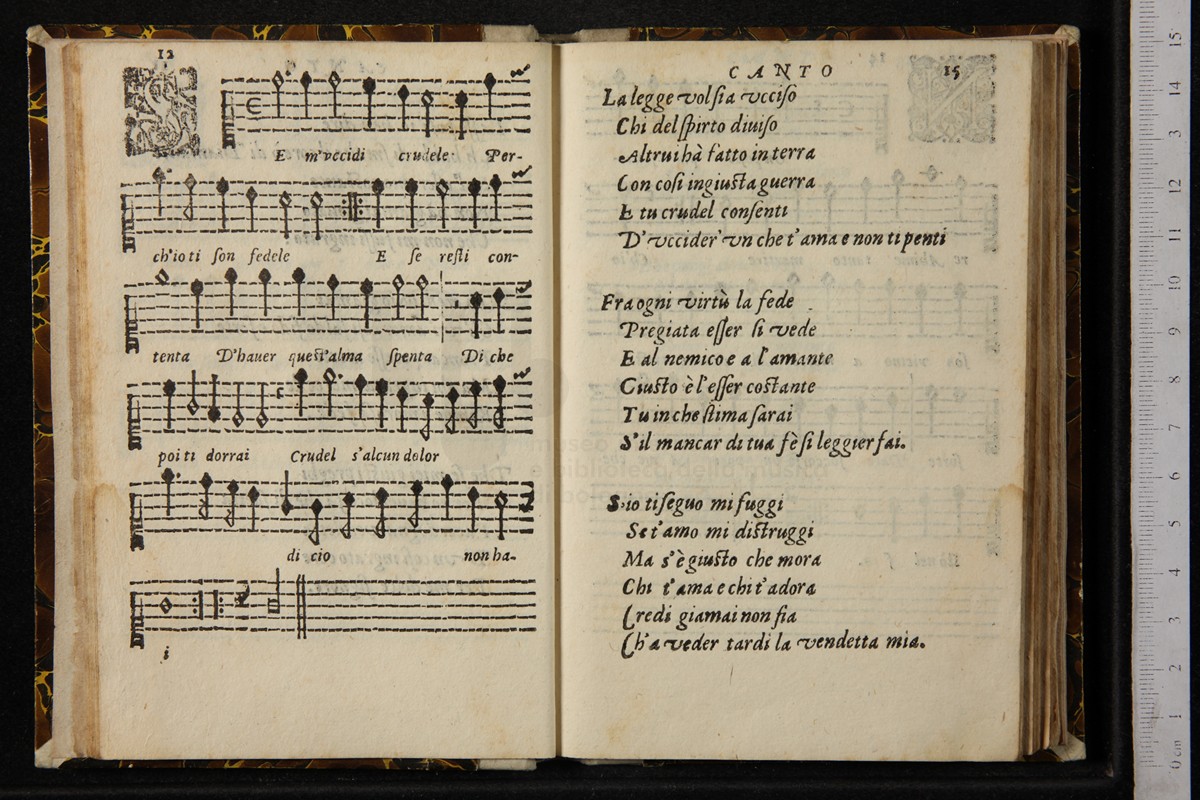 12
S
E m'vccidi crudele Per-
ch'io ti ſon fedele E ſe reſti con-
tenta D'hauer queſt'alma ſpenta Di che
poi ti dorrai Crudel s'alcun dolor
di cio non ha-
i
CANTO 15
La legge volſia vcciſo
Chi del ſpirto diuiſo
Altrui hà fatto in terra
Con coſi ingiuſta guerra
E tu crudel conſenti
D'vccider' vn che t'ama e non ti penti
Fra ogni virtù la fede
Pregiata eſſer ſi vede
E al nemico e a l'amante
Giuſto è l'eſſer coſtante
Tu in che ſtima ſarai
S'il mancar di tua fè ſi leggier fai.
S'io ti ſeguo mi fuggi
Se t'amo mi diſtruggi
Ma s'è giuſto che mora
Chi t'ama e chi t'adora
Credi giamai non fia
Ch'a veder tardi la vendetta mia.
museo
e biblioteca della musica
15
14
13
12
11
10
9
8
7
6
5
4
3
2
1
0 cm